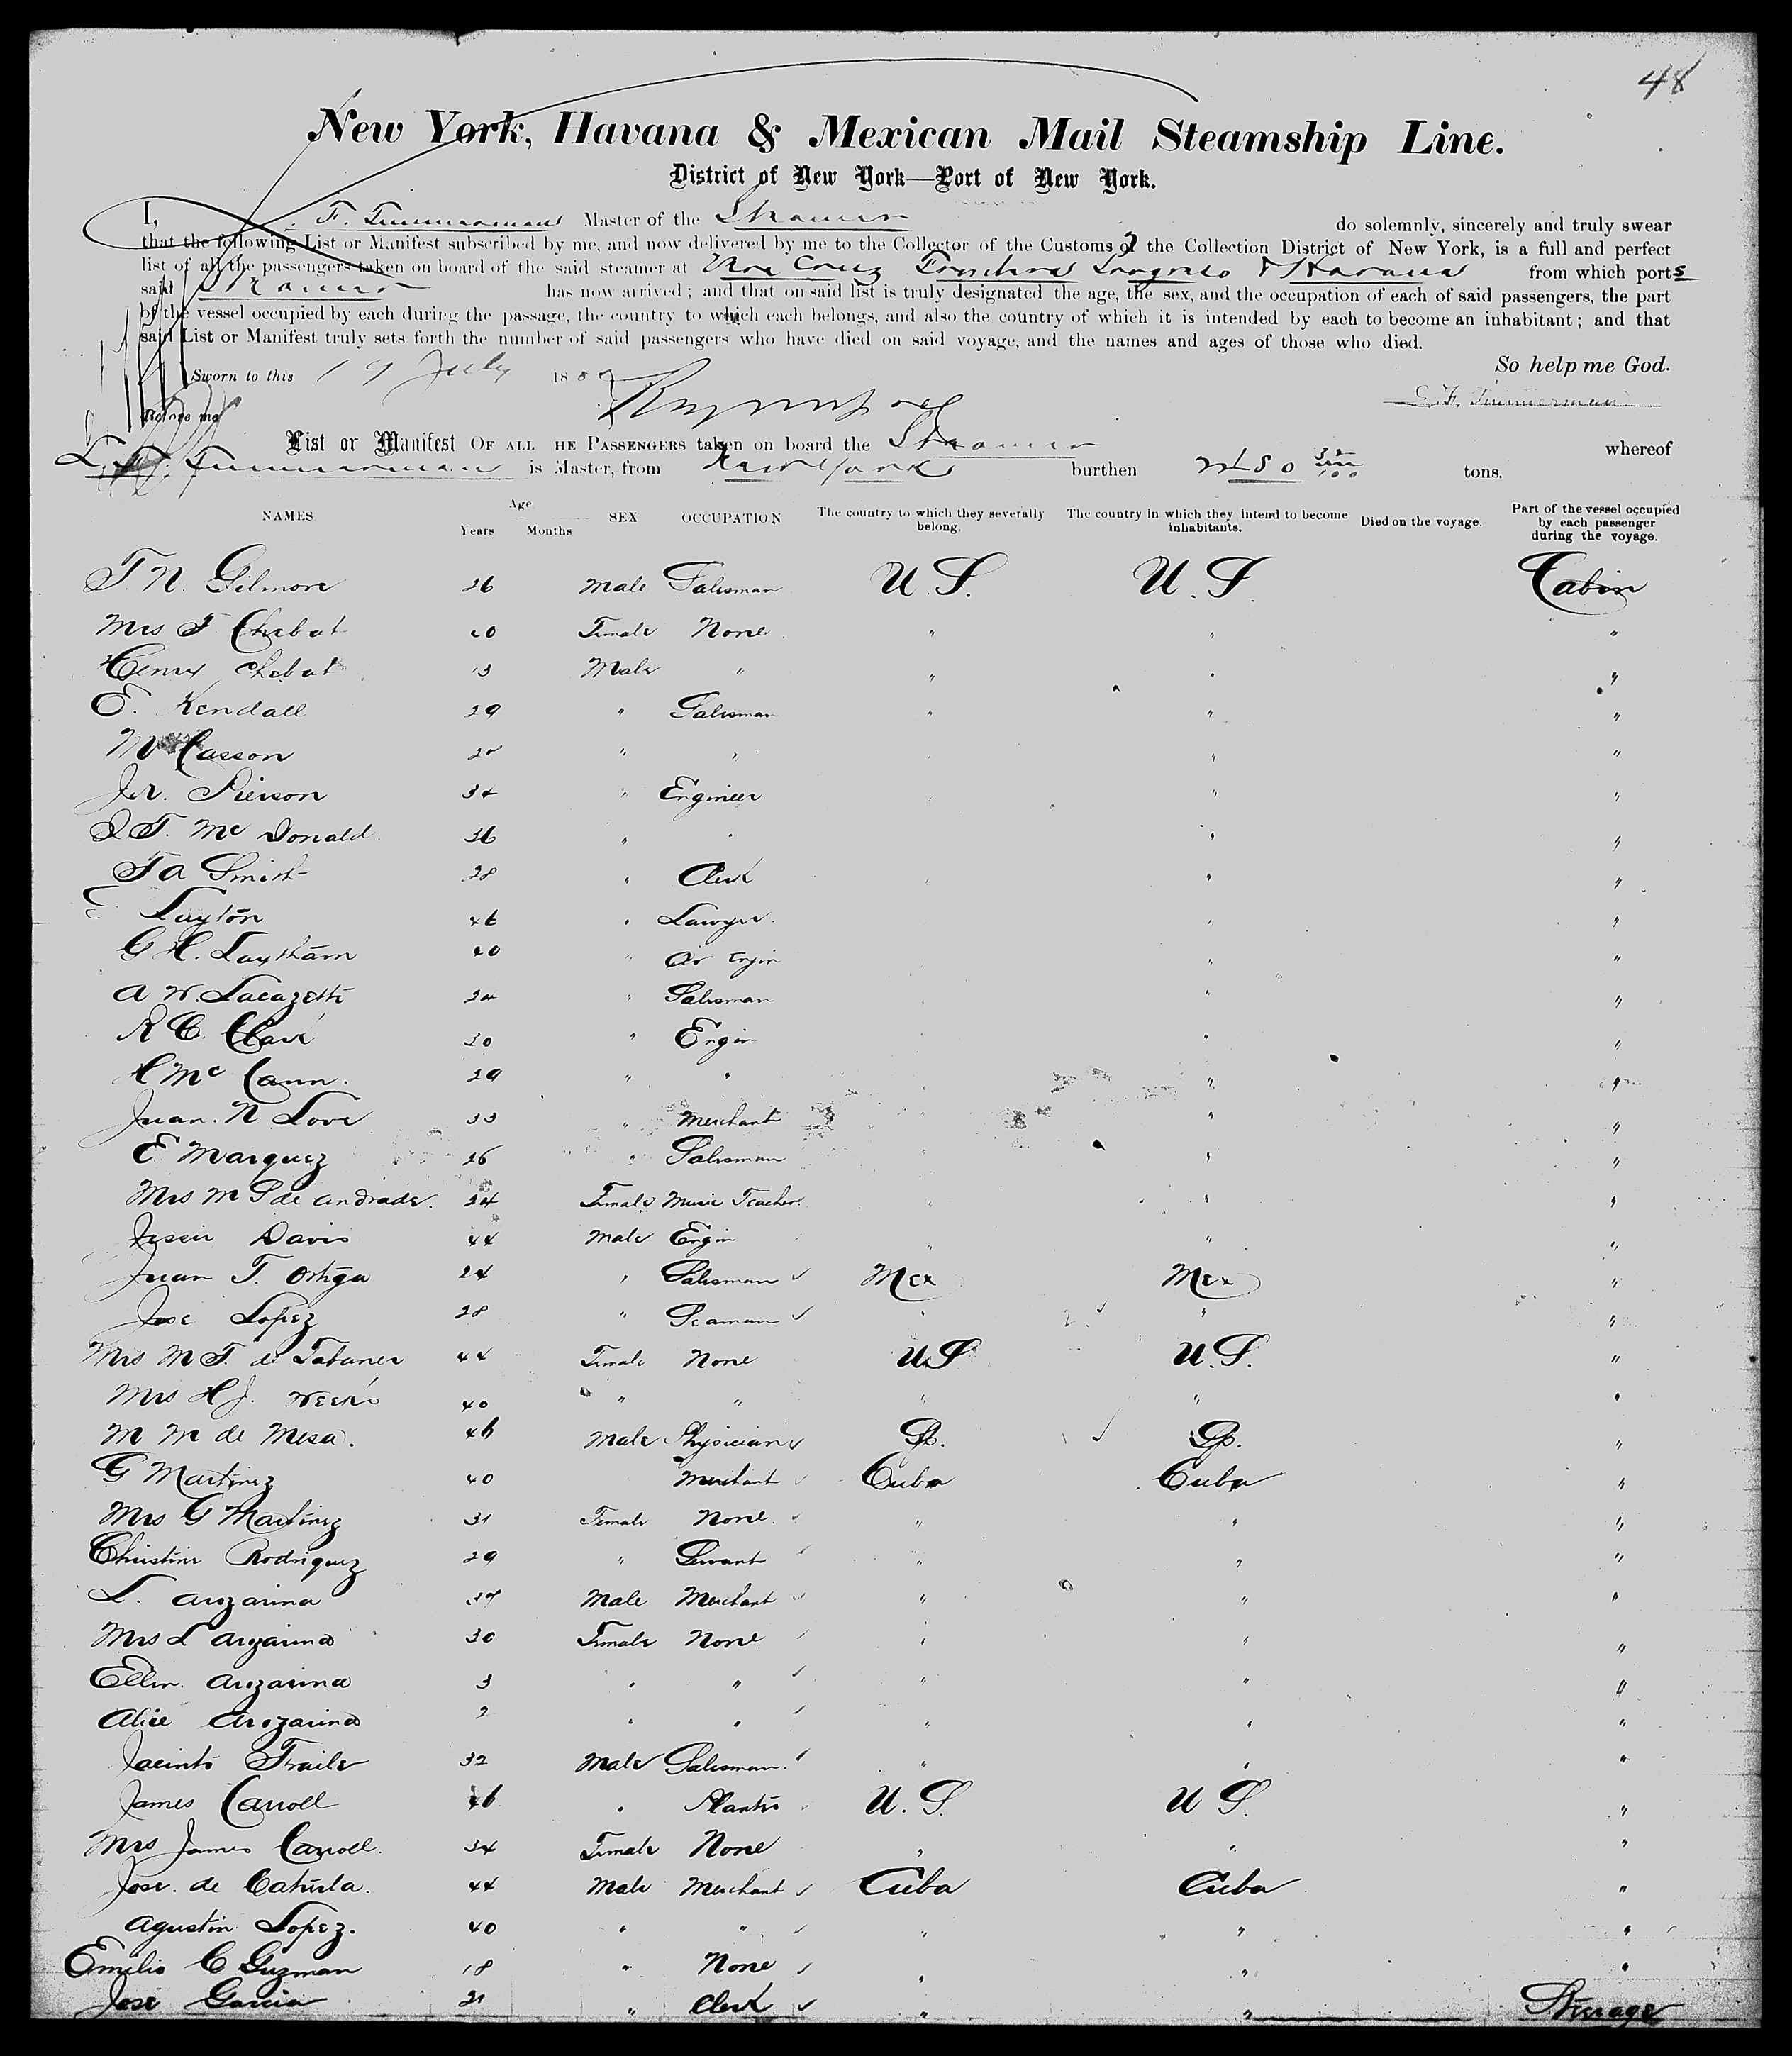 48
New York, Havana & Mexican Mail Steamship Line.
District of New York—Port of New York.
I, F. Timmerman Master of the do solemnly, sincerely and truly swear
that the following List or Manifest subscribed by me, and now delivered by me to the Collector of the Customs of the Collection District of New York, is a full and perfect
list of all the passengers taken on board of the said steamer at Vera Cruz Frontera Progreso & Havana from which ports
said has now arrived; and that on said list is truly designated the age, the sex, and the occupation of each of said passengers, the part
of the vessel occupied by each during the passage, the country to which each belongs, and also the country of which it is intended by each to become an inhabitant; and that
said List or Manifest truly sets forth the number of said passengers who have died on said voyage, and the names and ages of those who died.
So help me God.
Sworn to this 19 July 188
F. Timmerman
Before me
List or Manifest OF ALL HE PASSENGERS taken on board the whereof
Timmerman is Master, from New York burthen tons.
NAMES Age Years Months SEX OCCUPATION The country to which they severally belong. The country in which they intend to become inhabitants. Died on the voyage. Part of the vessel occupied by each passenger during the voyage.
T. N. Gilmore 26 Male Salesman U.S. U.S. Cabin
Mrs F Chebat Female None " " "
Henry Chebat 13 Male " " " "
E. Kendall 29 " Salesman " " "
Casson " " " " "
Pierson 34 " Engineer " "
T. Mc Donald 36 " " " "
F A Smith 28 " Clerk " "
Layton 46 " Lawyer " "
G H. Laytham 40 " " "
A W. Lacazette 24 " Salesman " "
R C. Clark 30 " Engin " "
H Mc Cann. 29 " " " "
Juan. N Love 33 " Merchant " "
E Marquez 26 " Salesman " "
Mrs M P de Andrade. 24 Female Music Teacher " "
Jessie Davis 44 Male Engin " " "
Juan T. Ortega 24 " Salesman Mex Mex "
Jose Lopez 28 " Seaman " " "
Mrs M F. de Tabaner 44 Female None U.S U.S. "
Mrs H J. Weeks 40 " " " " "
M M de Mesa. 46 Male Physician Sp. Sp. "
G Martinez 40 Merchant Cuba Cuba "
Mrs G Martinez 31 Female None " " "
Christine Rodriquez 29 " Servant " " "
L. Arozarina Male Merchant " " "
Mrs L Arozarina 30 Female None " " "
Ellen Arozarina 3 " " " " "
Alice Arozarina 2 " " " " "
Jacinto Fraile 32 Male Salesman " " "
James Carroll 46 " Planter U.S. U S. "
Mrs James Carroll. 34 Female None " " "
Jose. de Caturla. 44 Male Merchant Cuba Cuba "
Agustin Lopez. 40 " " " " "
Emilio C Guzman 18 " None " " "
Jose Garcia 21 " Clerk " " Steerage